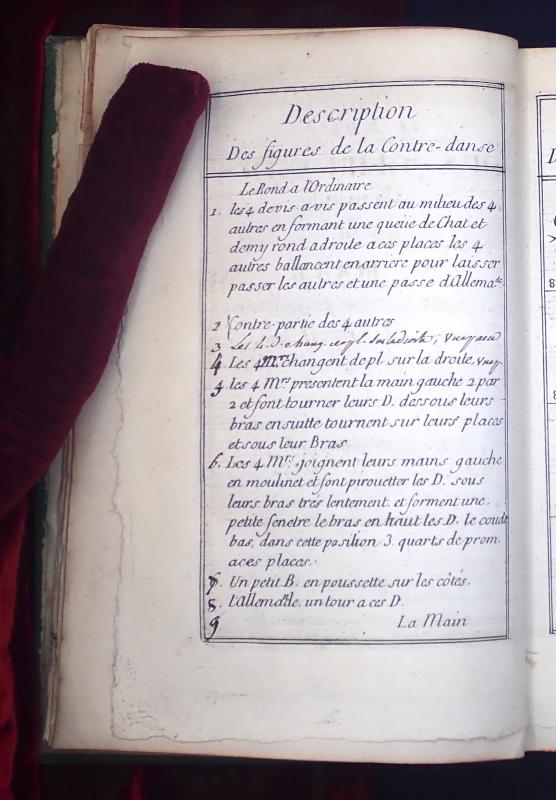 Description
Des figures de la Contre-danse
Le Rond a l'Ordinaire
1. les 4 de vis-a-vis passent au milieu des 4
autres en formant une queüe de Chat et
demy rond a droite a ces places les 4
autres ballancent en arriere pour laisser
passer les autres et une passe d'Allemade.
2 Contre-partie des 4 autres
3 Les 4 D. chang. de pl. sur la droite,
4. Les 4 Mrs changent de pl. sur la droite,
5. les 4 Mrs presentent la main gauche 2 par
2 et font tourner leurs D. dessous leurs
bras ensuitte tournent sur leurs places
et sous leur Bras
6. Les 4 Mrs joignent leurs mains gauche
en moulinet et font pirouetter les D. sous
leurs bras trés lentement et forment une
petite fenetre le bras en haut les D. le coude
bas, dans cette position 3. quarts de prom
a ces places.
7. Un petit B. en poussette sur les côtés.
8. l'Allemade, un tour a ces D.
9 La Main
8
8